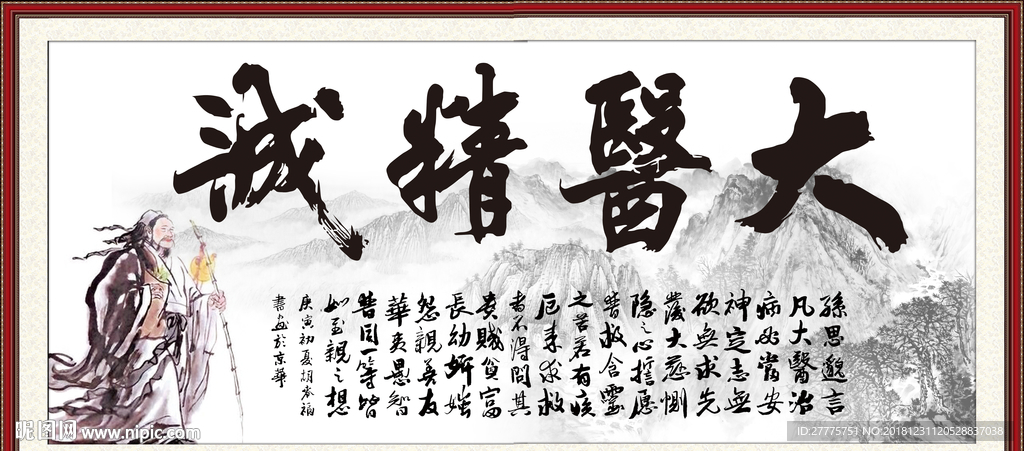 大醫精誠
孫思邈言
凡大醫治
病必當安
神定志無
欲無求先
發大慈惻
隐之心誓愿
普救含靈
之苦若有疾
厄来求救
者不得問其
貴賤貧富
長幼妍媸
怨親善友
華夷愚智
普同一等皆
如至親之想
庚寅初夏胡福
書於京華
昵图网 www.nipic.com
ID:27775751 NO:20181231120528837036